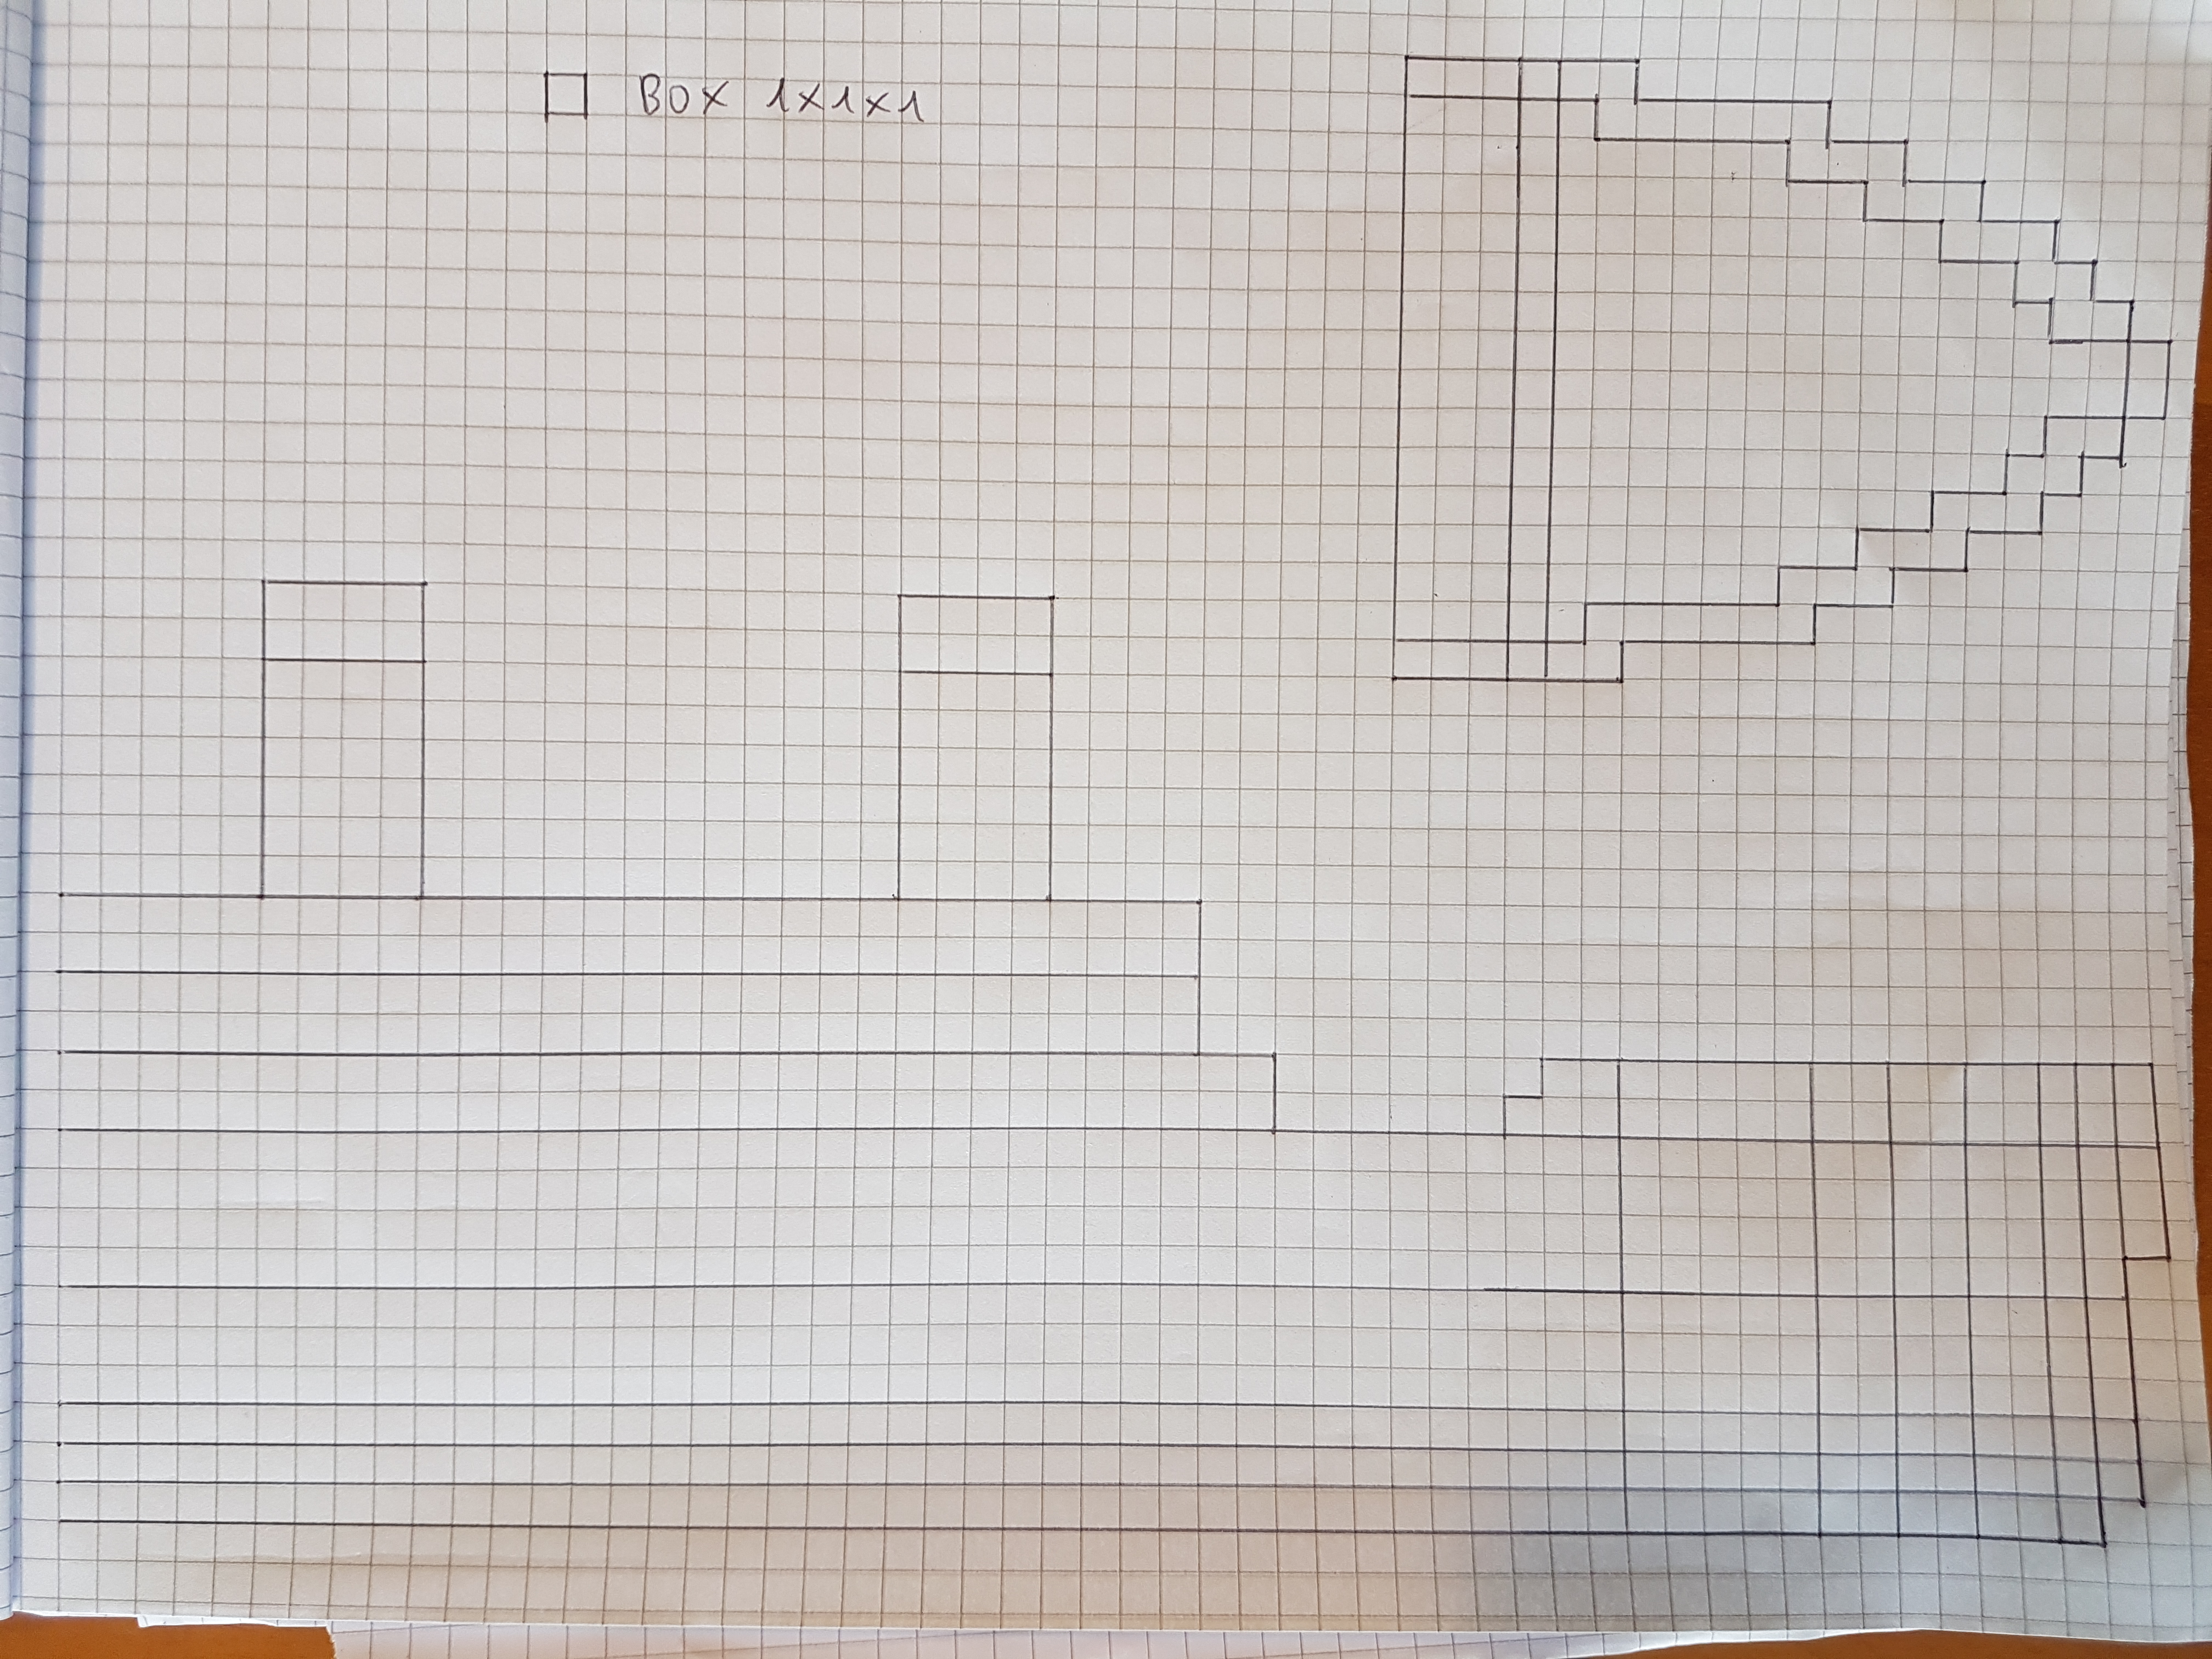 BOX 1x1x1